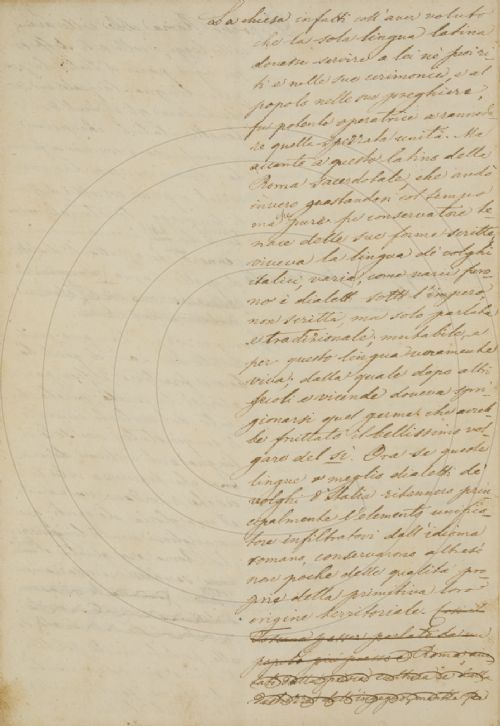 La chiesa infatti coll'aver voluto
che la sola lingua latina
dovesse servire a lei nè suoi ri-
ti e nelle sue cerimonie, e al
popolo nelle sue preghiere,
fu potente operatrice a rannoda-
re quella spezzata unità. Ma
accanto a questo latino della
Roma sacerdotale che andò
invero guastandosi col tempo
ma pure fu conservatore te-
nace delle sue forme scritte,
viveva la lingua de' volghi
italici, varia, come varii furo-
no i dialetti sotto l'impero,
non scritta, ma solo parlata
e tradizionale; mutabile, e
per questo lingua veramente
viva; dalla quale dopo altri
secoli e vicende doveva spri-
gionarsi quel germe che avreb-
be fruttato il bellissimo vol-
gare del sì. Ora se queste
lingue o meglio dialetti de'
volghi d'Italia ritennero prin-
cipalmente l'elemento unifica-
tore infiltratovi dall'idioma
romano, conservarono altresì
non poche delle qualità pro-
prie della primitiva loro
origine territoriale.